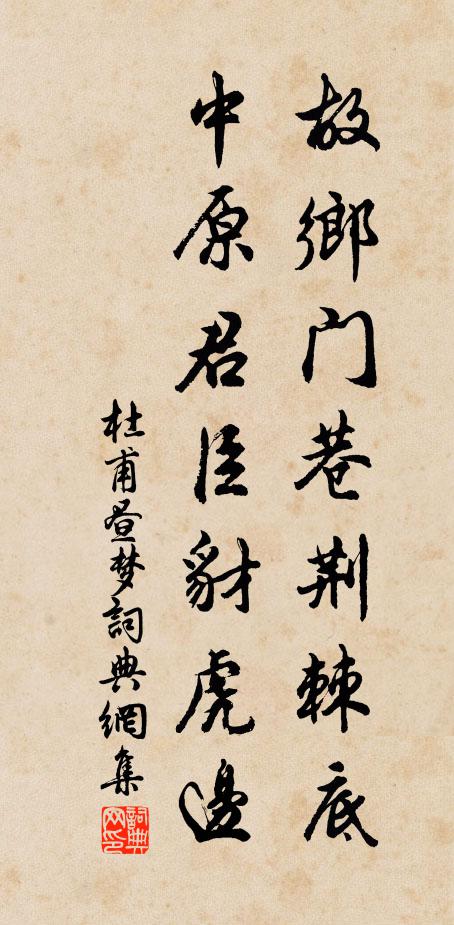 故鄉门巷荆棘底
中原君臣豺虎邊
杜甫昼梦詞典網集
詞典网印